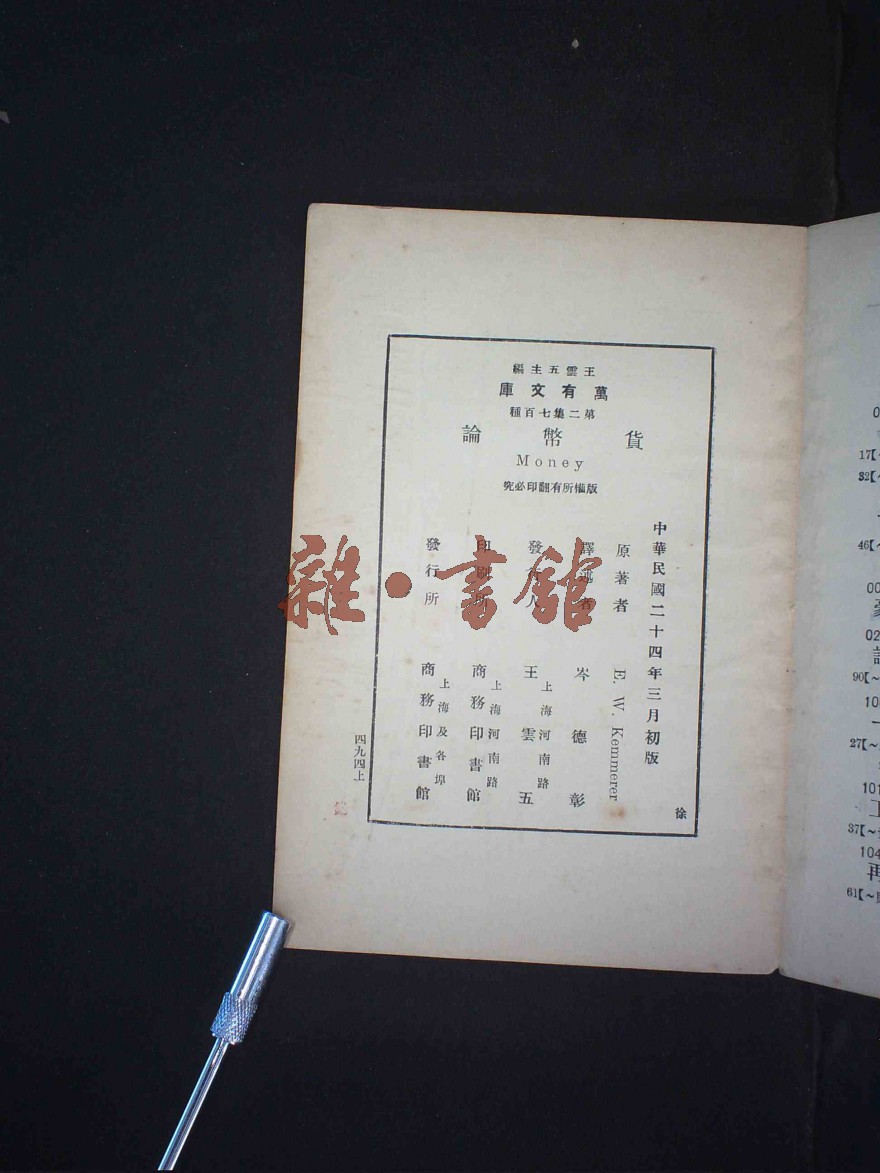 王雲五主編
萬有文庫
第二集七百種
貨幣論
Money
版權所有翻印必究
中華民國二十四年三月初版
原著者 E. W. Kemmerer
譯述者 岑德彰
發行人 王雲五
上海河南路
印刷所 商務印書館
上海河南路
發行所 商務印書館
上海及各埠
徐
四九四上
雜·書館
17【~
32【~
46【~
90【~
27【~
101
37【~
104
再
61【~